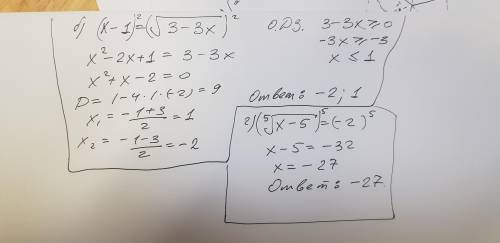 б) (x-1)²=(√3-3x)²
x²-2x+1 = 3-3x
x²+x-2=0
D= 1-4·1·(-2)=9
x₁ = -1+3/2 = 1
x₂ = -1-3/2 = -2
О.Д.З. 3-3x ≥ 0
-3x ≥ -3
x ≤ 1
Ответ: -2; 1
г) (⁵√x-5)⁵=(-2)⁵
x-5 = -32
x = -27
Ответ: -27.